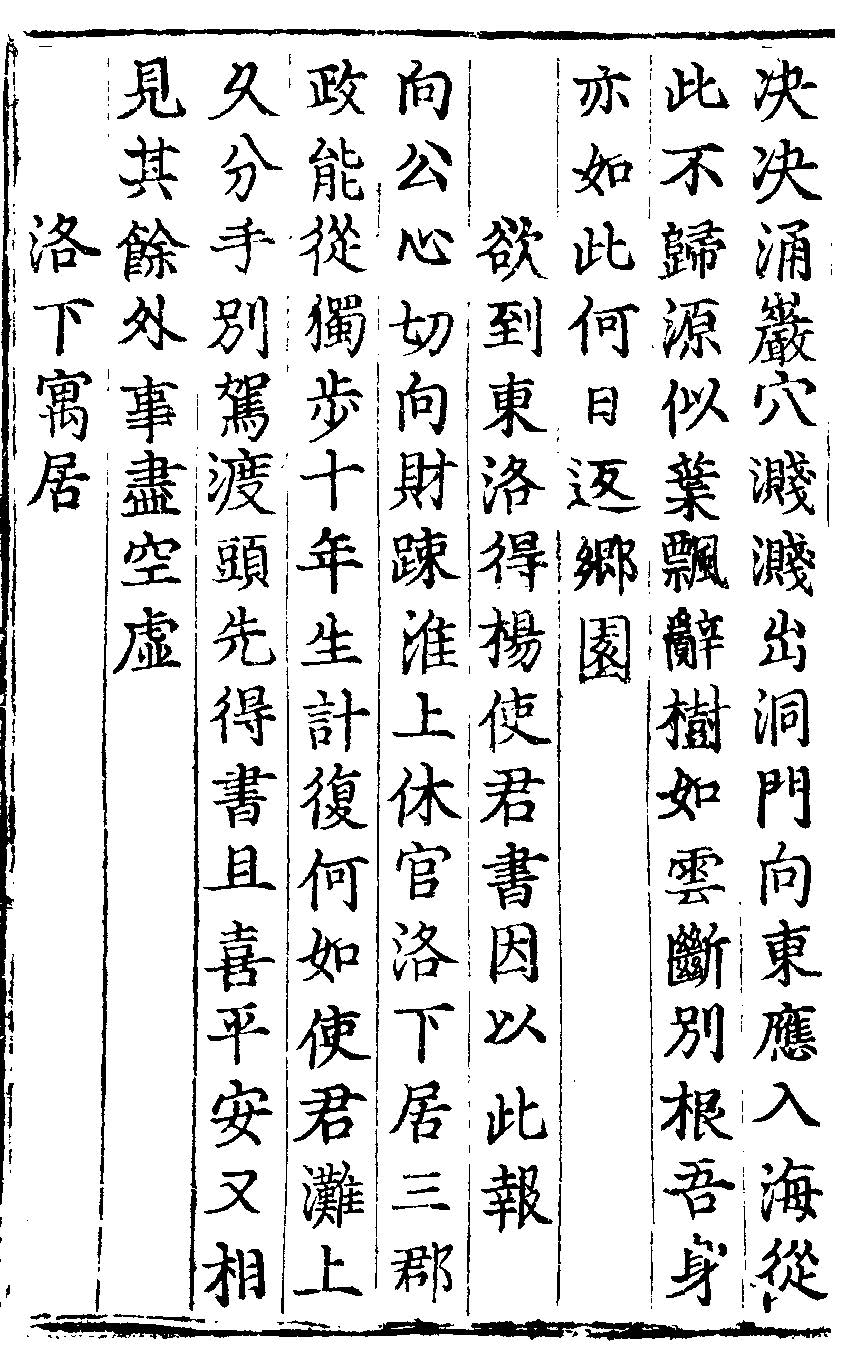 决决涌巖穴濺濺出洞門向東應入海從
此不歸源似葉飄辭樹如雲斷别根吾身
亦如此何日返鄉園
欲到東洛得楊使君書因以此報
向公心切向財踈淮上休官洛下居三郡
政能從獨歩十年生計復何如使君灘上
久分手别駕渡頭先得書且喜平安又相
見其餘外事盡空虛
洛下寓居